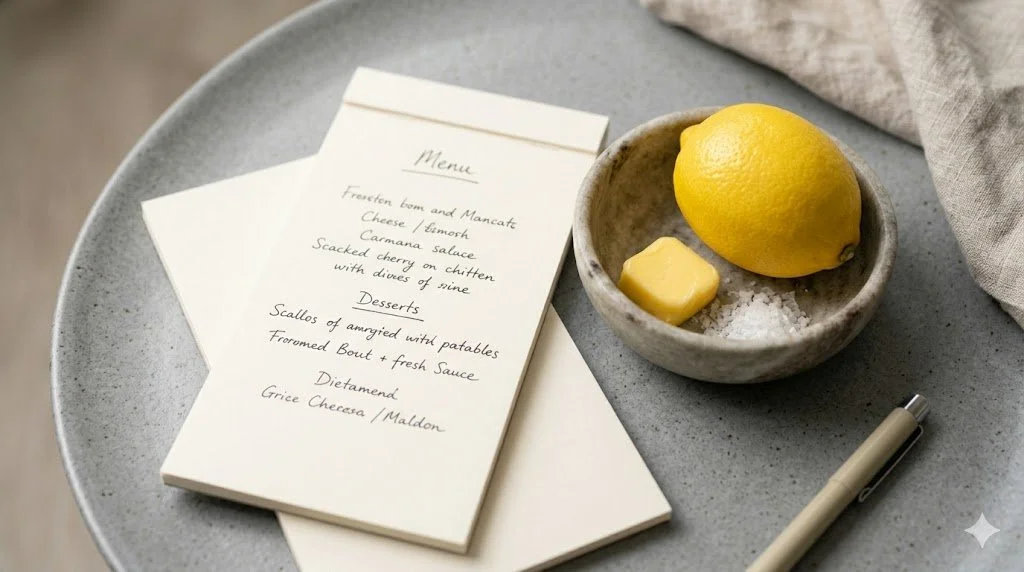 Menu
Freston bom and Mancats
Cheese / Esmosh
Carmana saluce
Scacked cherry on chitten
with divres of sine
Desserts
Scallos of amrgied witht patables
Froromed Bout + fresh Sauce
Dietamend
Grice Checesa / Maldon